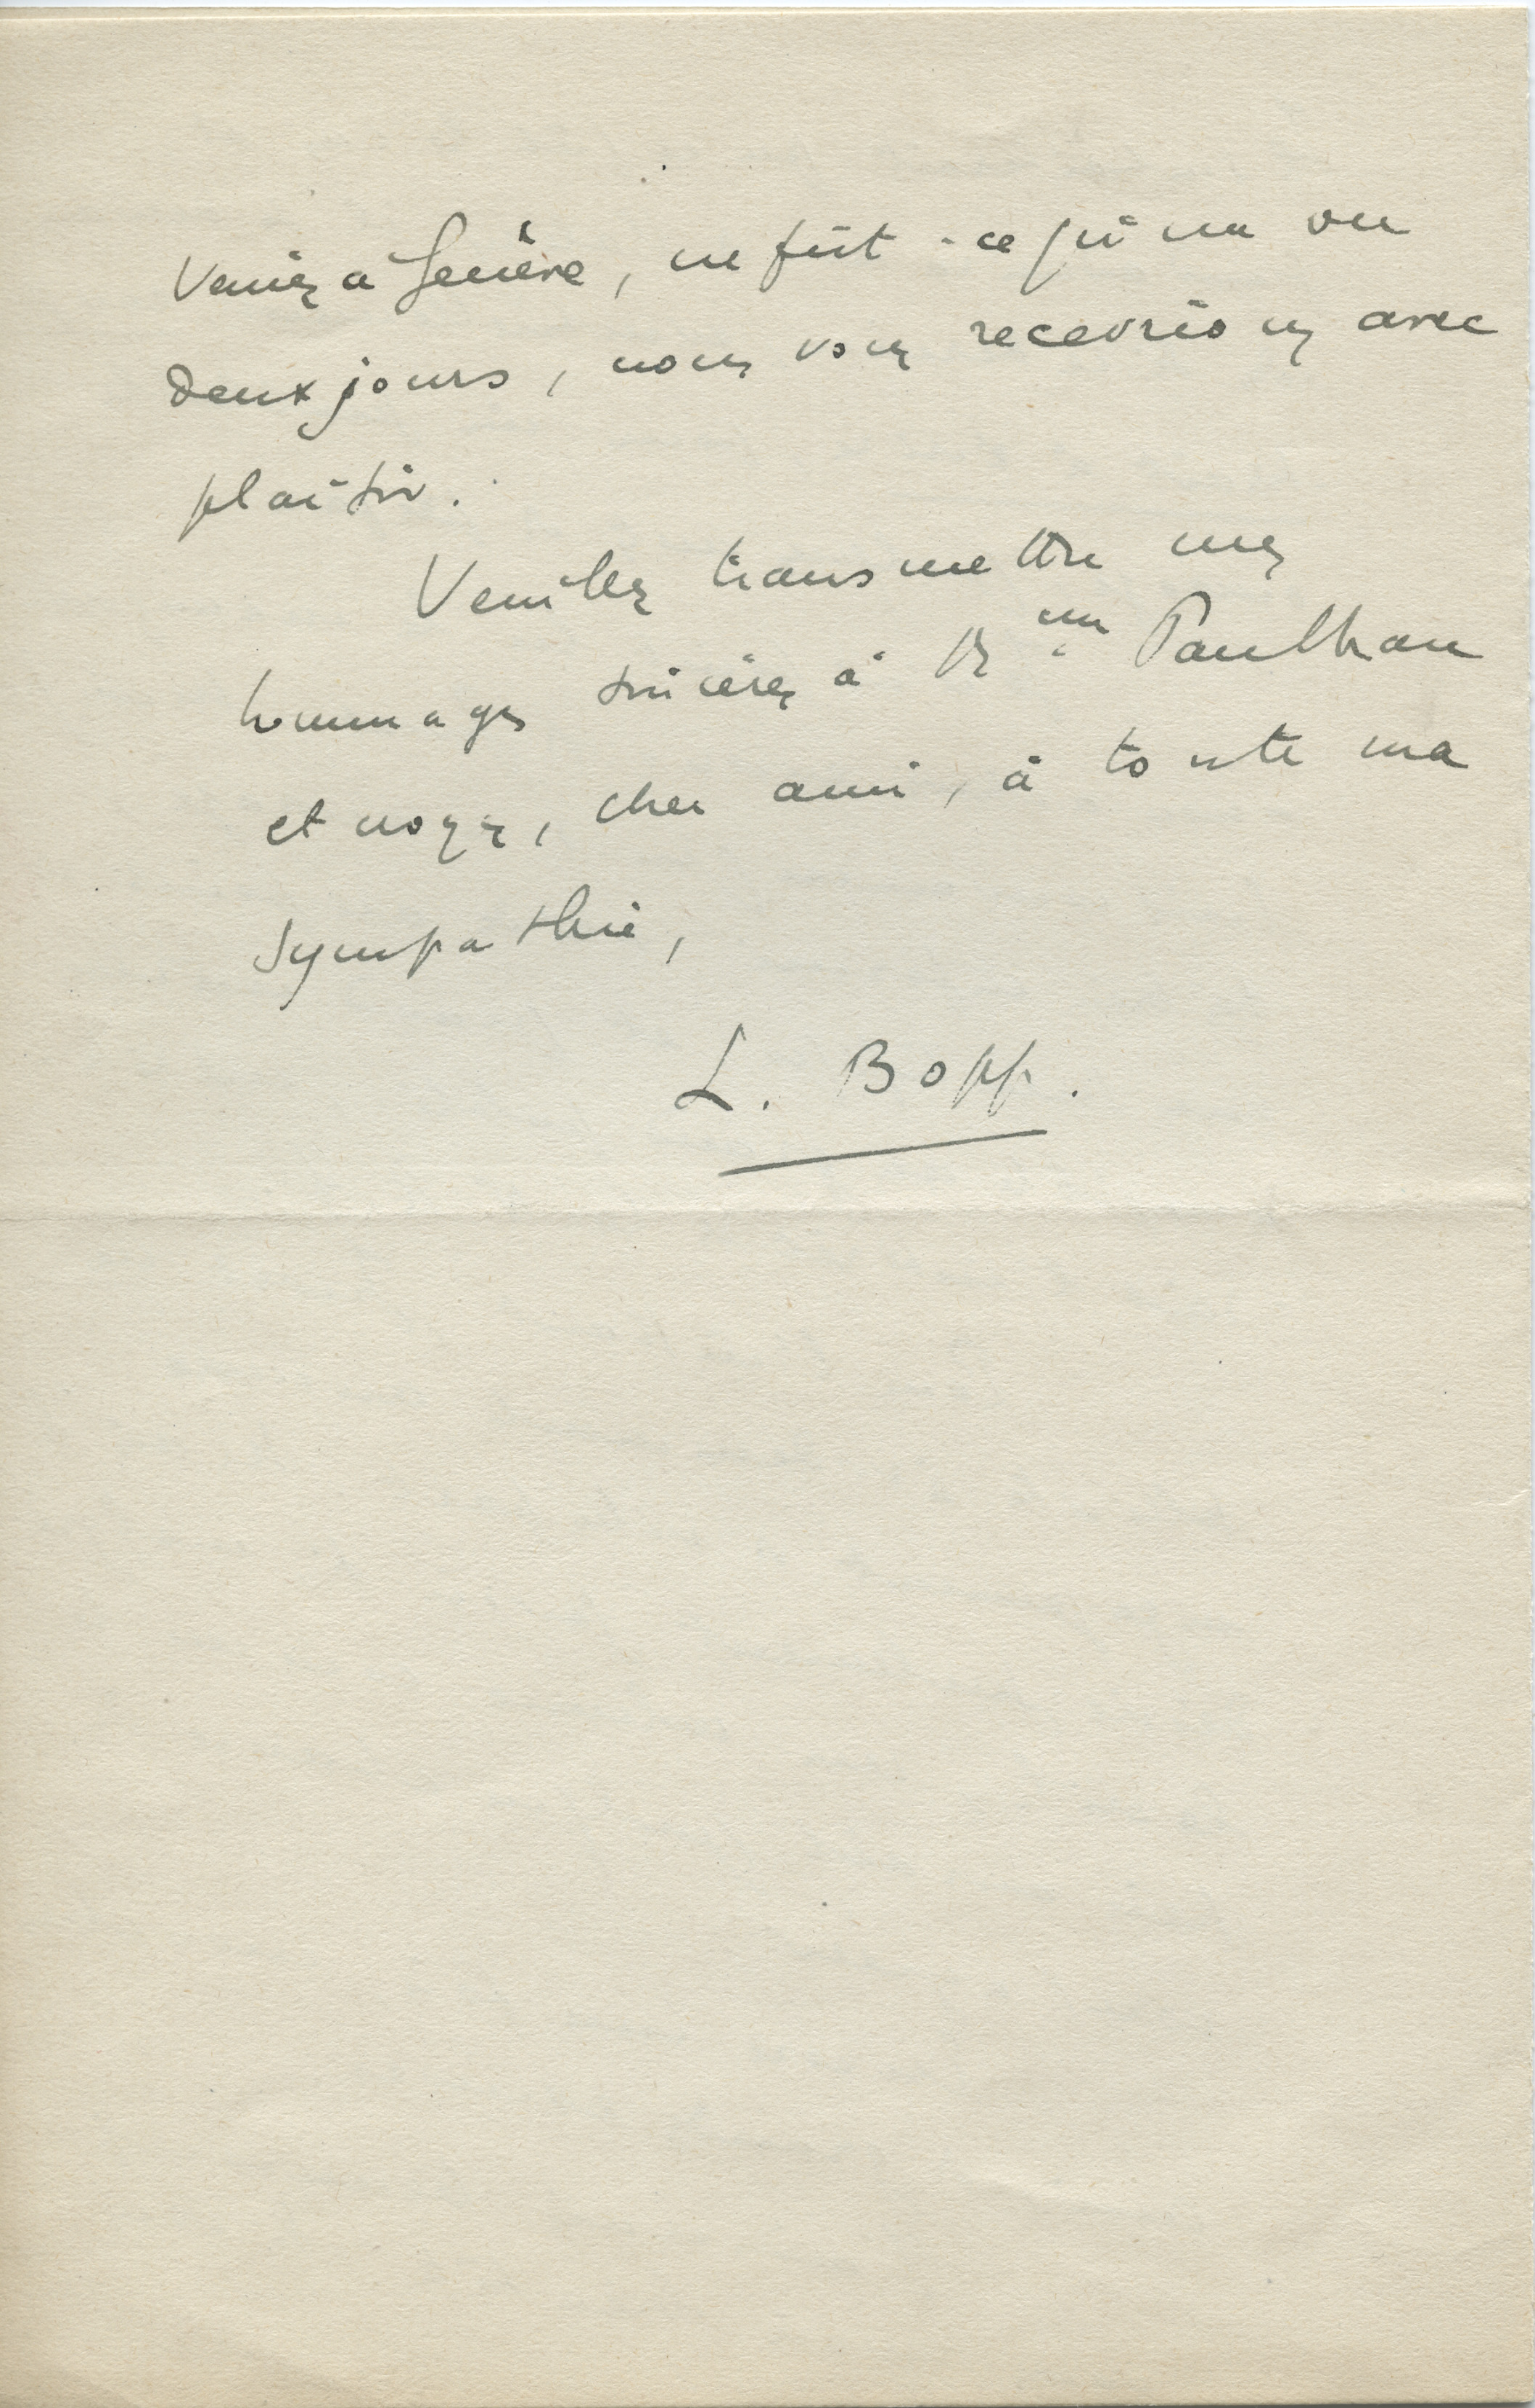 veniez à Genève, ne fût-ce qu'un ou
deux jours, nous vous recevrions avec
plaisir.
Veuillez transmettre mes
hommages sincères à Mme Paulhan
et croyez, cher ami, à toute ma
sympathie,
L. Bopp.